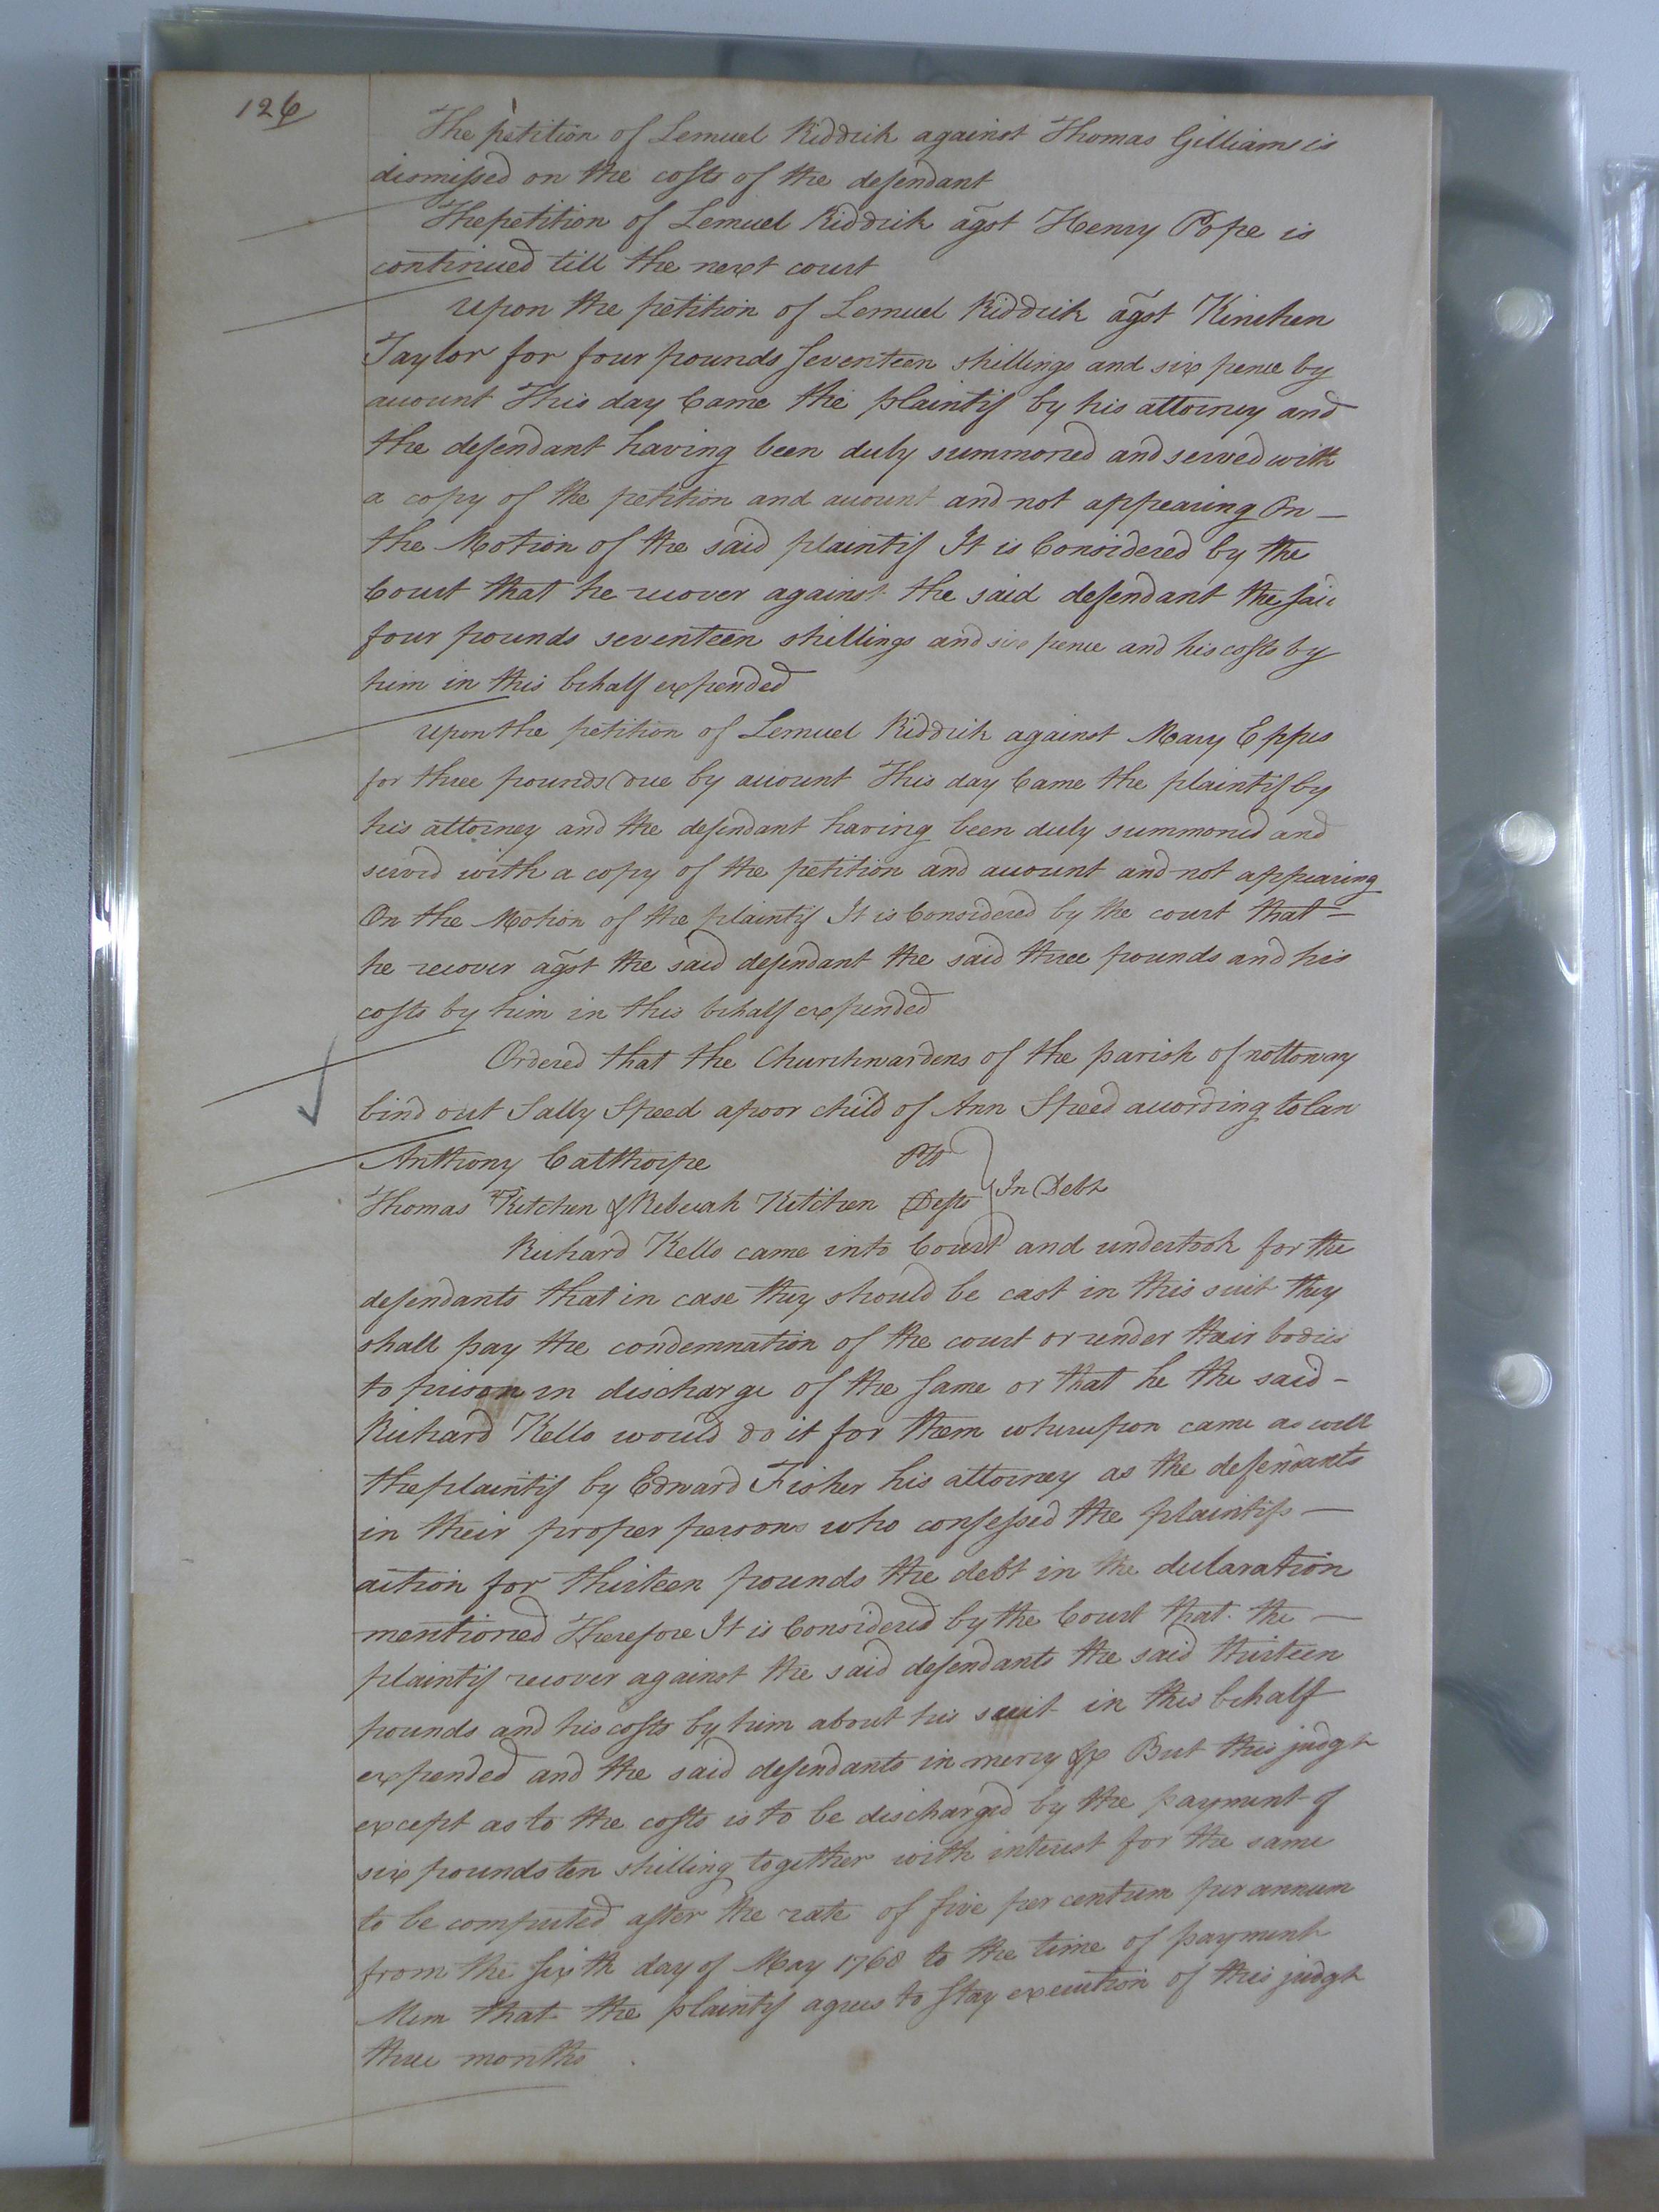 126
The petition of Lemuel Riddick against Thomas Gilliam is
dismissed on the costs of the defendant
The petition of Lemuel Riddick agst Henry Pope is
continued till the next court
Upon the petition of Lemuel Riddick agst Kinchen
Taylor for four pounds seventeen shillings and six pence by
account This day Came the plaintif by his attorney and
the defendant having been duly summoned and served with
a copy of the petition and account and not appearing On —
the Motion of the said plaintif It is Considered by the
Court that he recover against the said defendant the said
four pounds seventeen shillings and six pence and his costs by
him in this behalf expended
Upon the petition of Lemuel Riddick against Mary Eppes
for three pounds due by account This day Came the plaintif by
his attorney and the defendant having been duly summoned and
served with a copy of the petition and account and not appearing
On the Motion of the plaintif It is Considered by the court that —
he recover agst the said defendant the said three pounds and his
costs by him in this behalf expended
Ordered that the Churchwardens of the parish of nottoway
bind out Sally Speed a poor child of Ann Speed according to law
Anthony Calthorpe Plt
Thomas Kitchen & Rebecah Kitchen Defts } In Debt
Richard Kello came into Court and undertook for the
defendants that in case they should be cast in this suit they
shall pay the condemnation of the court or render their bodies
to prison in discharge of the same or that he the said —
Richard Kello would do it for them whereupon came as well
the plaintif by Edward Fisher his attorney as the defendants
in their proper persons who confessed the plaintifs —
action for thirteen pounds the debt in the declaration
mentioned Therefore It is Considered by the Court that the —
plaintif recover against the said defendants the said thirteen
pounds and his costs by him about his suit in this behalf
expended and the said defendants in mercy &c But this judgt
except as to the costs is to be discharged by the payment of
six pounds ten shilling together with interest for the same
to be computed after the rate of five per centum per annum
from the sixth day of May 1768 to the time of payment
Mem that the plaintif agrees to stay execution of this judgt
three months